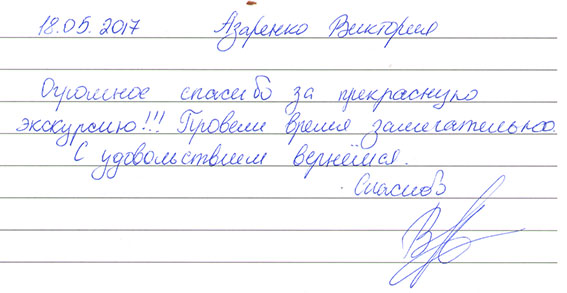 18.05.2017 Азаренко Виктория
Огромное спасибо за прекрасную
экскурсию!!! Провели время замечательно.
С удовольствием вернёмся.
Спасибо